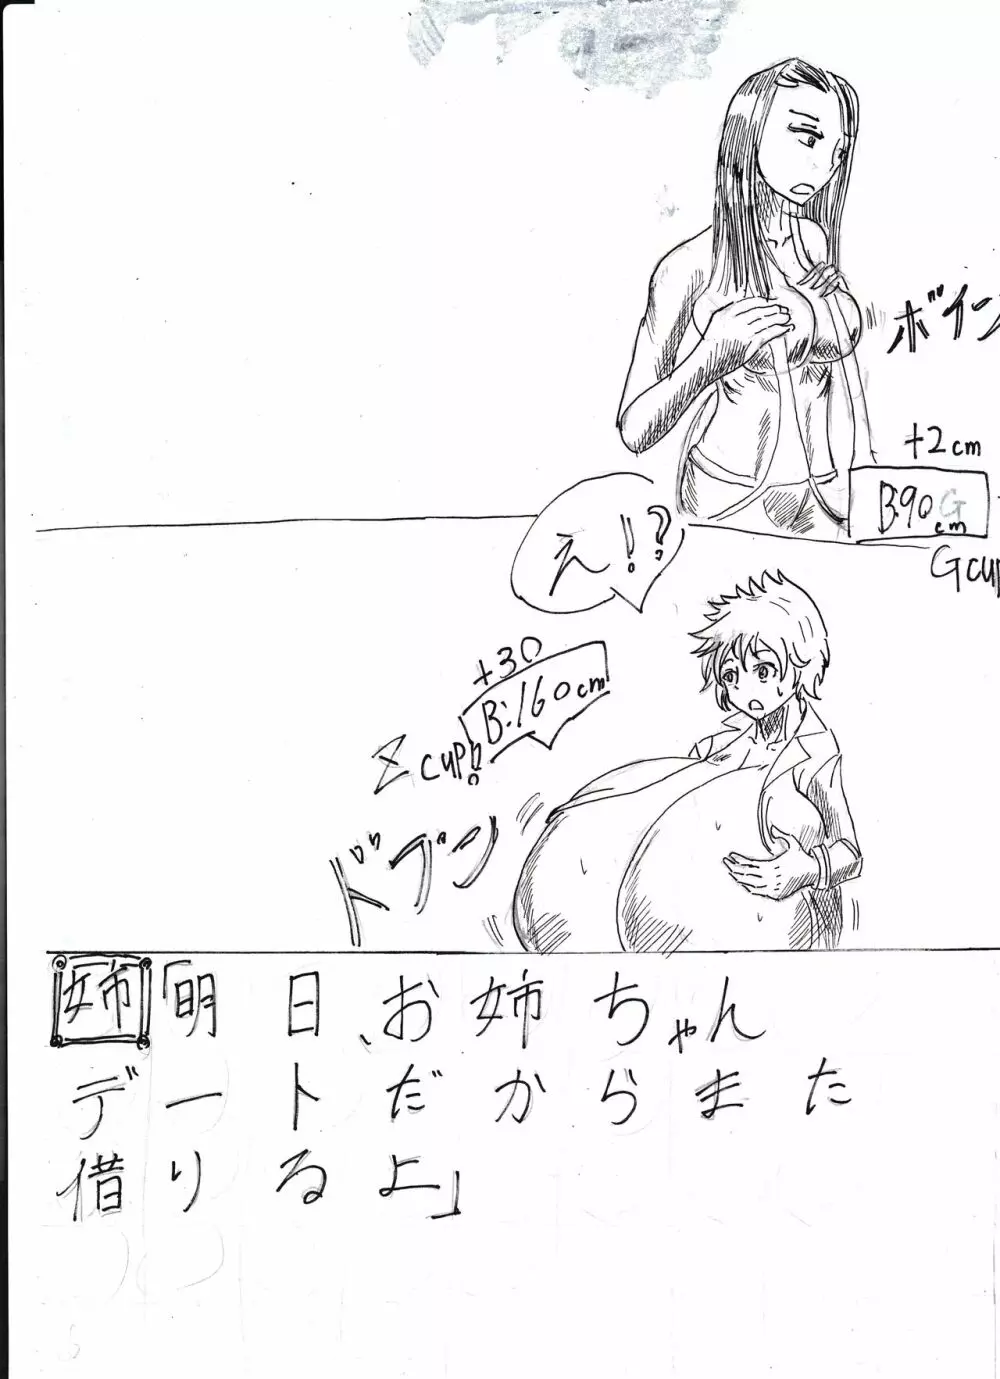 ボイン
+2cm
B:90G
cm
Gcup
え!?
+30
B:160cm
Zcup!!
ドプン
姉「明日、お姉ちゃん
デートだからまた
借りるよ」